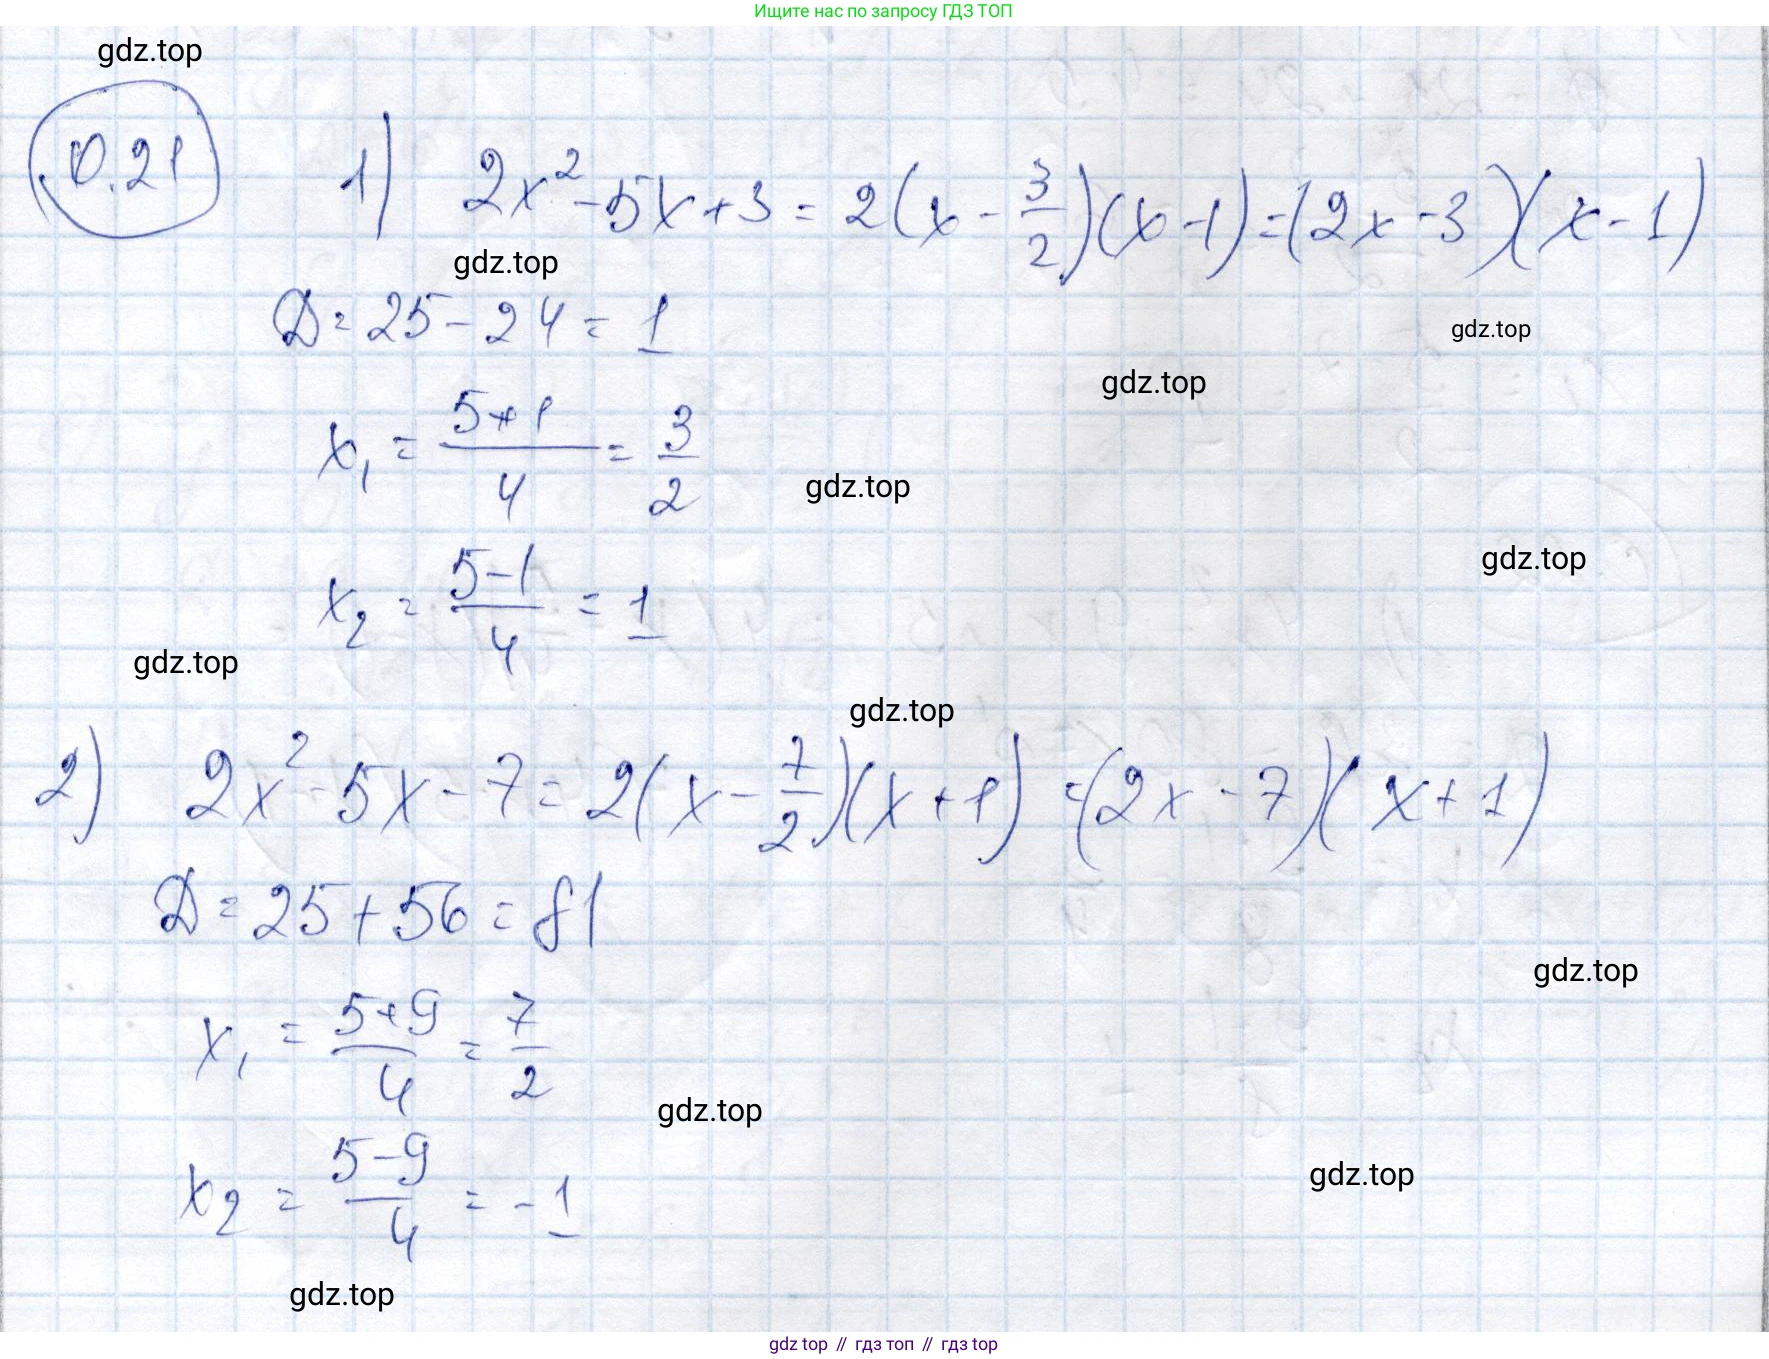 Ищите нас по запросу ГДЗ ТОП
gdz.top
0.21 1) 2x² - 5x + 3 = 2(x - 3/2)(x - 1) = (2x - 3)(x - 1)
gdz.top
D = 25 - 24 = 1
gdz.top
gdz.top
x₁ = (5+1)/4 = 3/2
gdz.top
gdz.top
x₂ = (5-1)/4 = 1
gdz.top
gdz.top
2) 2x² - 5x - 7 = 2(x - 7/2)(x + 1) = (2x - 7)(x + 1)
D = 25 + 56 = 81
gdz.top
x₁ = (5+9)/4 = 7/2
gdz.top
x₂ = (5-9)/4 = -1
gdz.top
gdz.top
gdz top // гдз топ // гдз top